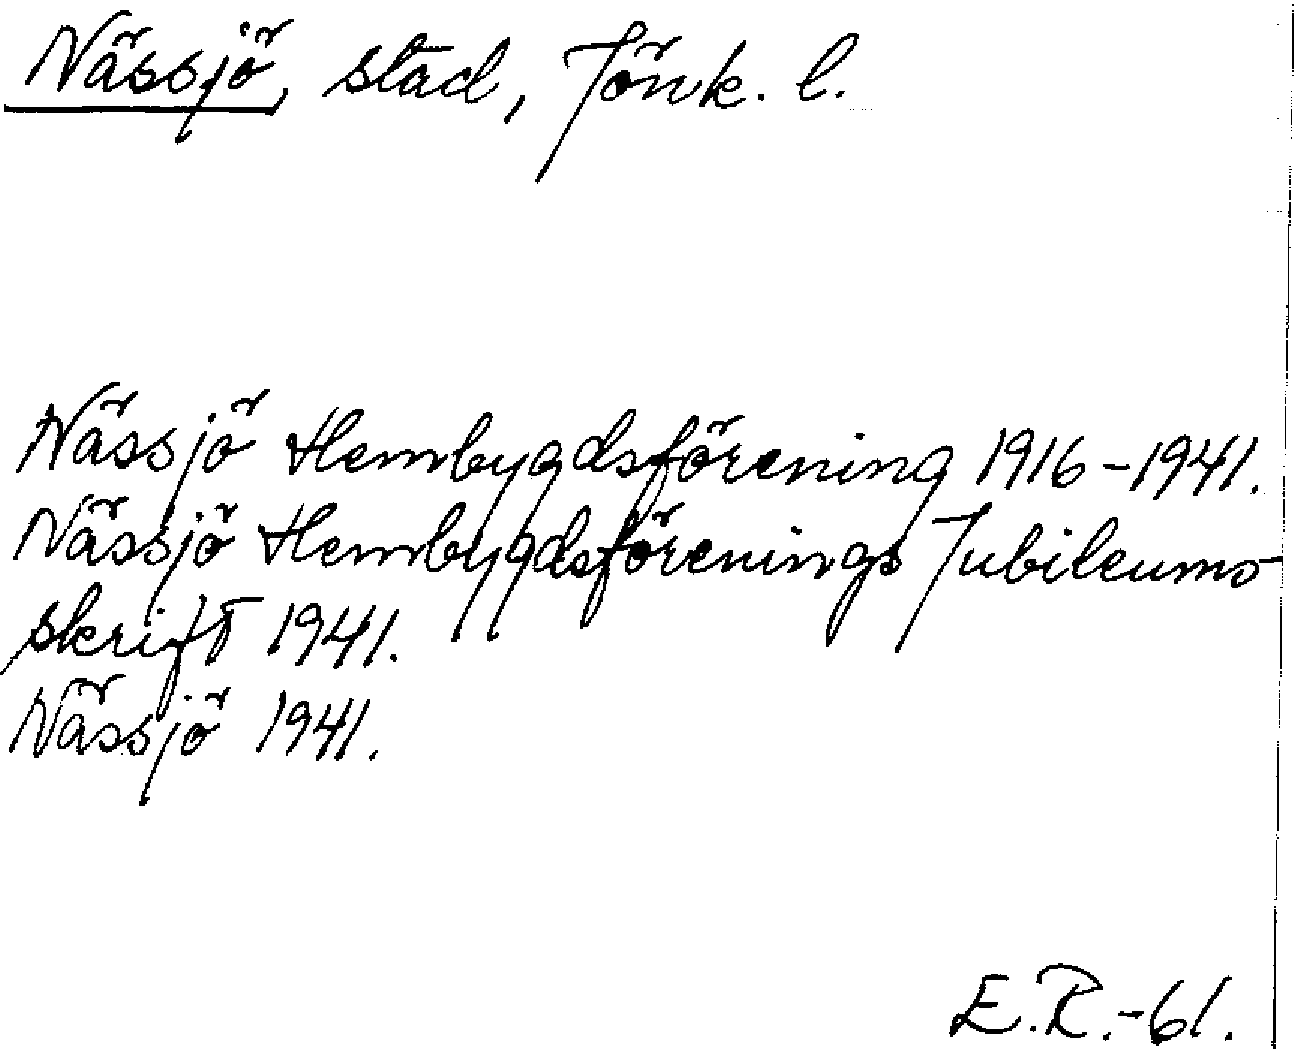 Nässjö, stad, Jönk. l.
Nässjö Hembygdsförening 1916-1941.
Nässjö Hembygdsförenings Jubileums-
skrift 1941.
Nässjö 1941.
E.R.-61.